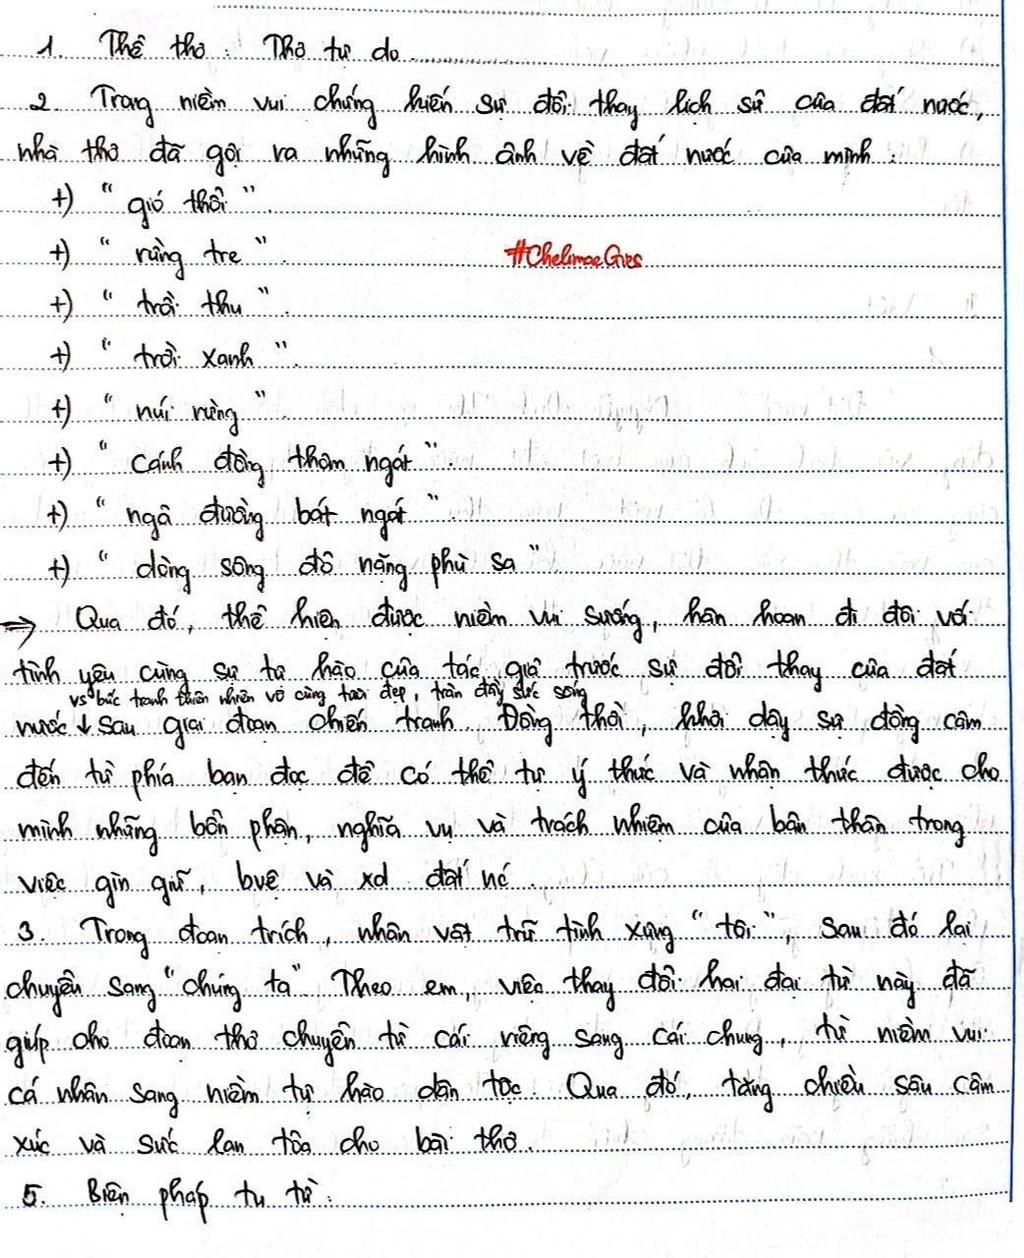 1. Thể thơ: Thơ tự do.
2. Trong niềm vui chứng kiến sự đổi thay lịch sử của đất nước,
nhà thơ đã gợi ra những hình ảnh về đất nước của mình:
+) "gió thổi".
+) "rừng tre".
#ChelimaeGres
+) "trời thu".
+) "trời xanh".
+) "núi rừng".
+) "cánh đồng thơm ngát".
+) "ngả đường bát ngát".
+) "dòng sông đỏ nặng phù sa"
⇒ Qua đó, thể hiện được niềm vui sướng, hân hoan đi đôi với
tình yêu cùng sự tự hào của tác giả trước sự đổi thay của đất
vs bức tranh thiên nhiên vô cùng tươi đẹp, tràn đầy sức sống
nước ↓ sau giai đoạn chiến tranh. Đồng thời, khơi dậy sự đồng cảm
đến từ phía bạn đọc để có thể tự ý thức và nhận thức được cho
mình những bổn phận, nghĩa vụ và trách nhiệm của bản thân trong
việc gìn giữ, bvệ và xd đất nc.
3. Trong đoạn trích, nhân vật trữ tình xưng "tôi", sau đó lại
chuyển sang "chúng ta". Theo em, việc thay đổi hai đại từ này đã
giúp cho đoạn thơ chuyển từ cái riêng sang cái chung, từ niềm vui
cá nhân sang niềm tự hào dân tộc. Qua đó, tăng chiều sâu cảm
xúc và sức lan tỏa cho bài thơ.
5. Biện pháp tu từ: